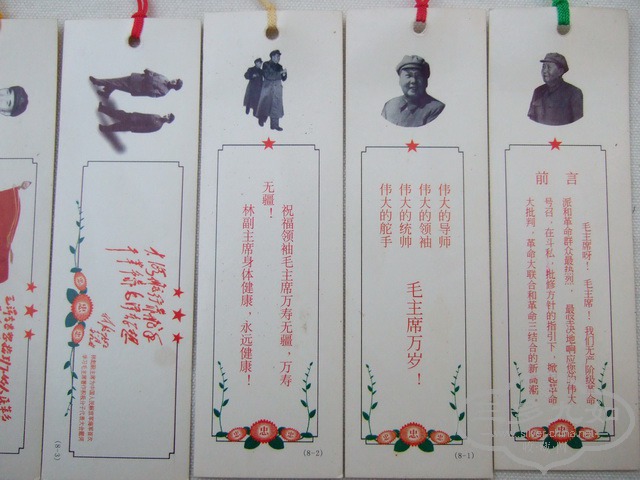 前言
毛主席呀！毛主席！我们无产阶级革命
派和革命群众最热烈，最坚决地响应您的伟大
号召，在斗私，批修方针的指引下，掀起革命
大批判，革命大联合和革命三结合的新高潮，
伟大的导师
伟大的领袖
伟大的统帅
伟大的舵手
毛主席万岁！
忠
(8-1)
祝福领袖毛主席万寿无疆，万寿
无疆！
林副主席身体健康，永远健康！
忠
(8-2)
大海航行靠舵手
干革命靠毛泽东思想
忠
(8-3)
silver.china.net